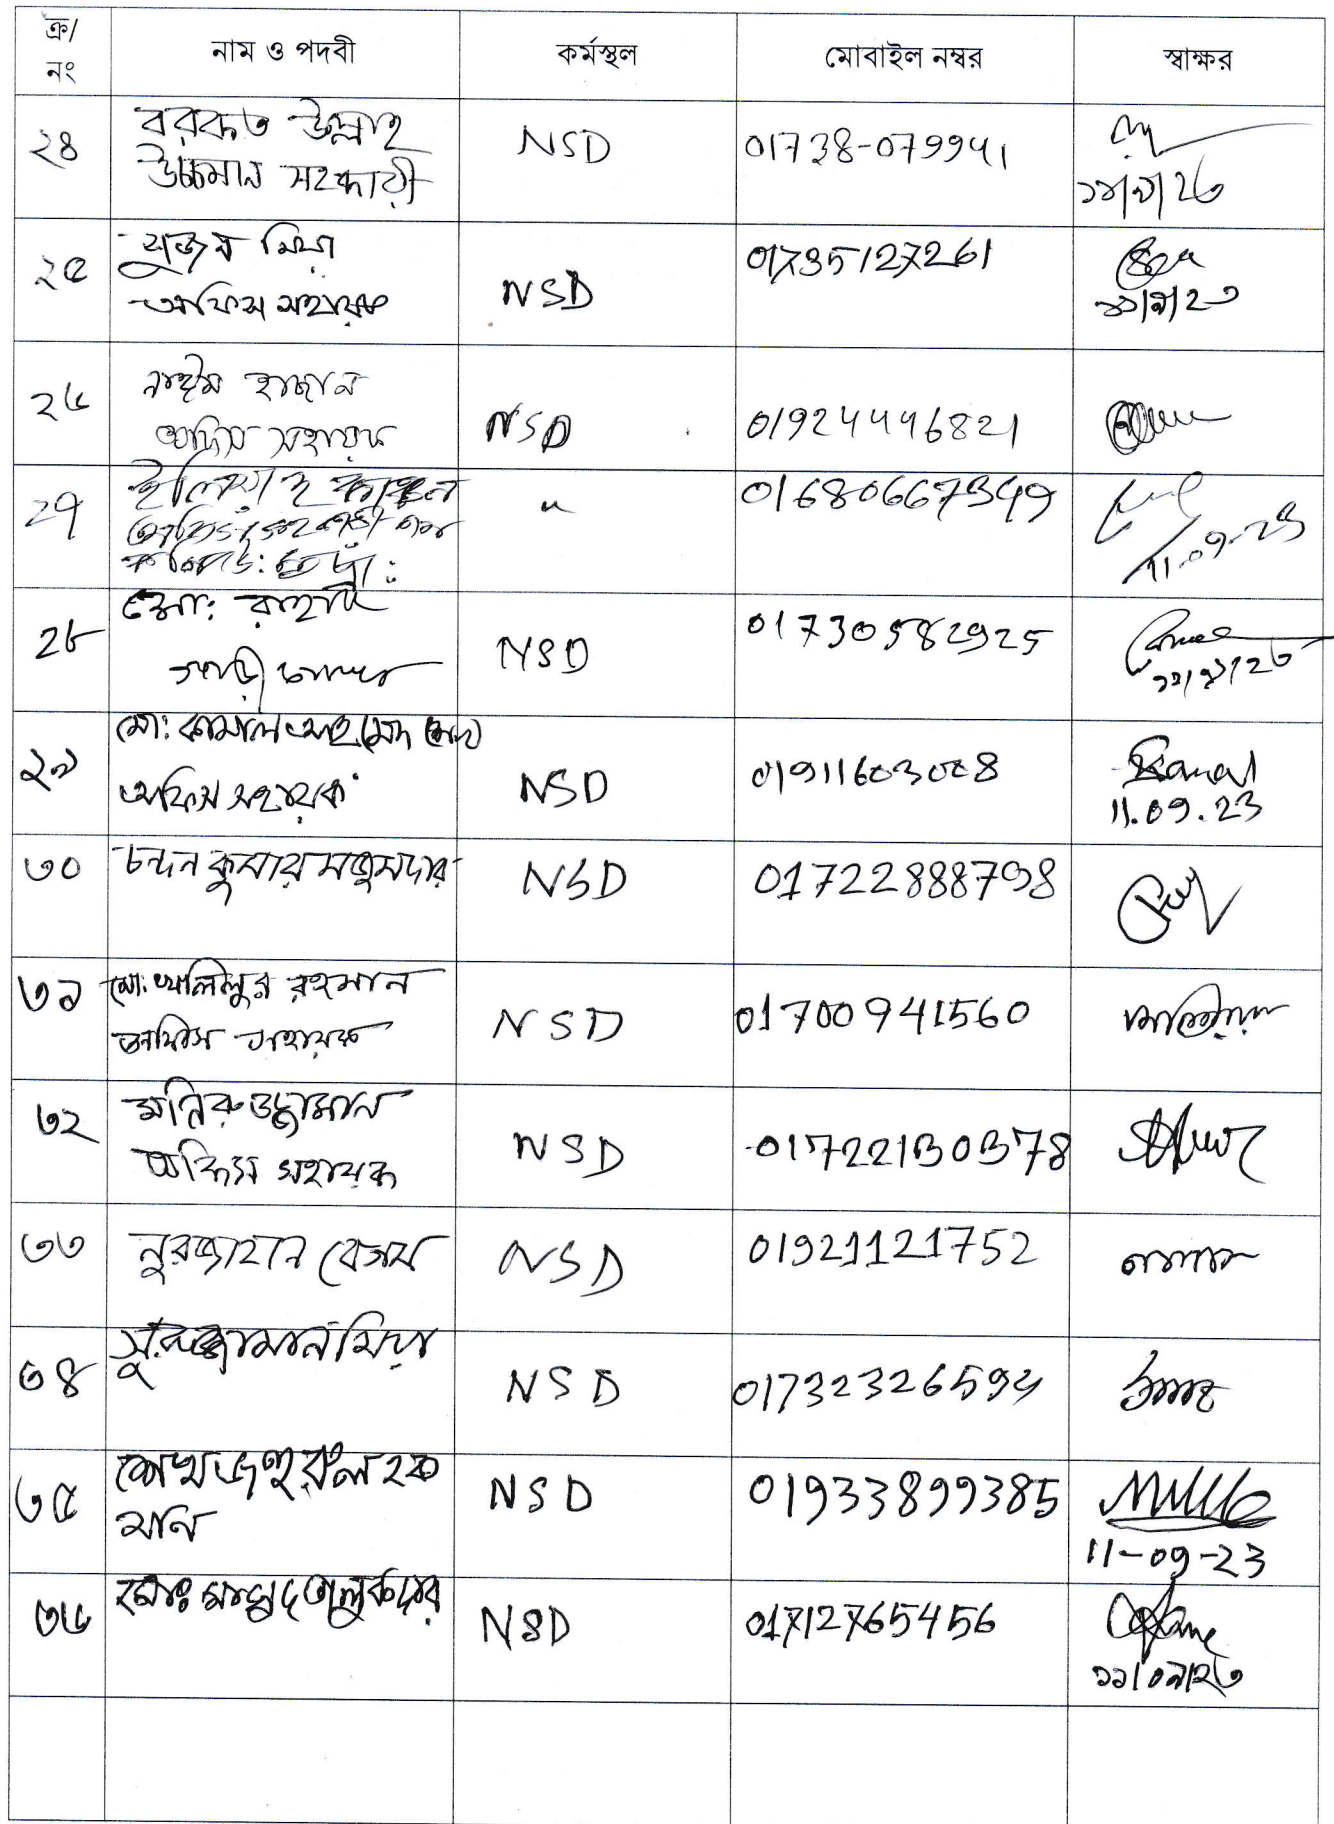 ক্র/
নং
নাম ও পদবী
কর্মস্থল
মোবাইল নম্বর
স্বাক্ষর
২৪
বরকত উল্লাহ
উচ্চমান সহকারী
NSD
01738-079941
১১/৯/২৩
২৫
সুজন মিয়া
অফিস সহায়ক
NSD
01735127261
১১/৯/২৩
২৬
নাঈম হাছান
অফিস সহায়ক
NSD
01924496821
২৭
ইলিয়াছ কাঞ্চন
"
01680667349
11.09.23
২৮
মো: রাহাদ
গাড়ী চালক
NSD
01730582925
১১/৯/২৩
২৯
মো: কামাল আহমেদ
অফিস সহায়ক
NSD
01911603008
Kamal
11.09.23
৩০
চন্দন কুমার মজুমদার
NSD
01722888798
৩১
মো: খলিলুর রহমান
অফিস সহায়ক
NSD
01700941560
৩২
মনিরুজ্জামান
অফিস সহায়ক
NSD
01722130378
৩৩
নুরজাহান বেগম
NSD
01921121752
৩৪
সুরুজ্জামান মিয়া
NSD
01732326594
৩৫
শেখ জহুরুল হক
মনি
NSD
01933899385
11-09-23
৩৬
মোঃ মাসুদ তালুকদার
NSD
01712765456
১১/০৯/২৩